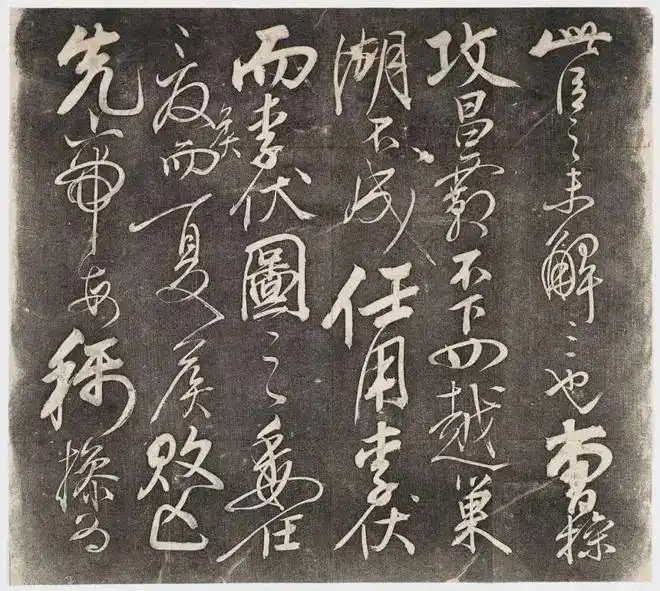 此臣之未解二也曹操
攻昌霸不下四越巢
湖不成任用李伏
而李伏圖之委任
夏侯而夏侯敗亡
先帝每稱操為